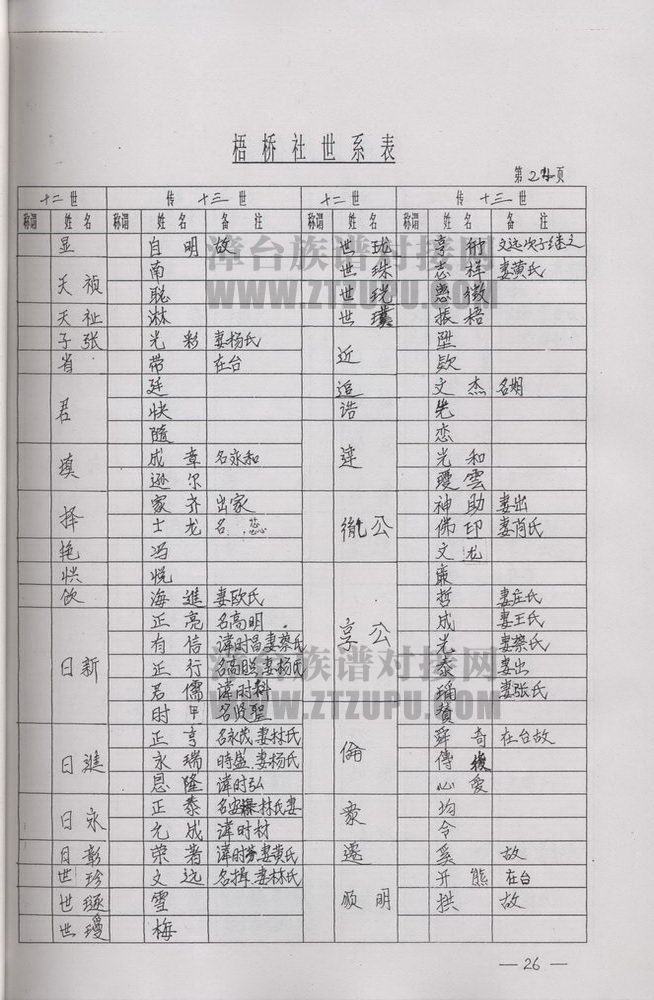 梧桥社世系表
第24页
十二世 传十三世 十二世 传十三世
称谓 姓名 称谓 姓名 备注 称谓 姓名 称谓 姓名 备注
显 自明 故
天祯 南
聪
天祉 淋
子张 光彩 妻杨氏
省 带 在台
君 廷
快
随
填 成章 名永和
逊尔
择 家齐 出家
士龙
艳 冯
烘 悦
钦 海进 妻欧氏
日新 正亮 名高明
有信 讳时昌妻蔡氏
正行 妻杨氏
儒 讳时科
时甲 名贤圣
日进 正亨 名永茂妻林氏
永瑞 時盛妻杨氏
恩隆 讳时弘
日永 正泰 林氏妻
允成 讳时材
月彰 荣著 妻黄氏
世珍 文远 妻林氏
世 雪
世璦 梅
世珑 享 文远次子继之
世珠 志祥 妻黄氏
世 徵
世璞 振梧
近 陞
欵
追 文杰
诰 先
達 恋
光和
璦雲
徹公 神助 妻出
佛印 妻肖氏
文龙
享公 哲 妻庄氏
成 妻王氏
光 妻蔡氏
泰 妻出
妻张氏
赞
倫 舜奇 在台故
傅後
心愛
衆 均
令
遜 奚 故
顺明 开熊 在台
拱 故
— 26 —
漳台族谱对接网
WWW.ZTZUPU.COM
漳台族谱对接网
WWW.ZTZUPU.COM